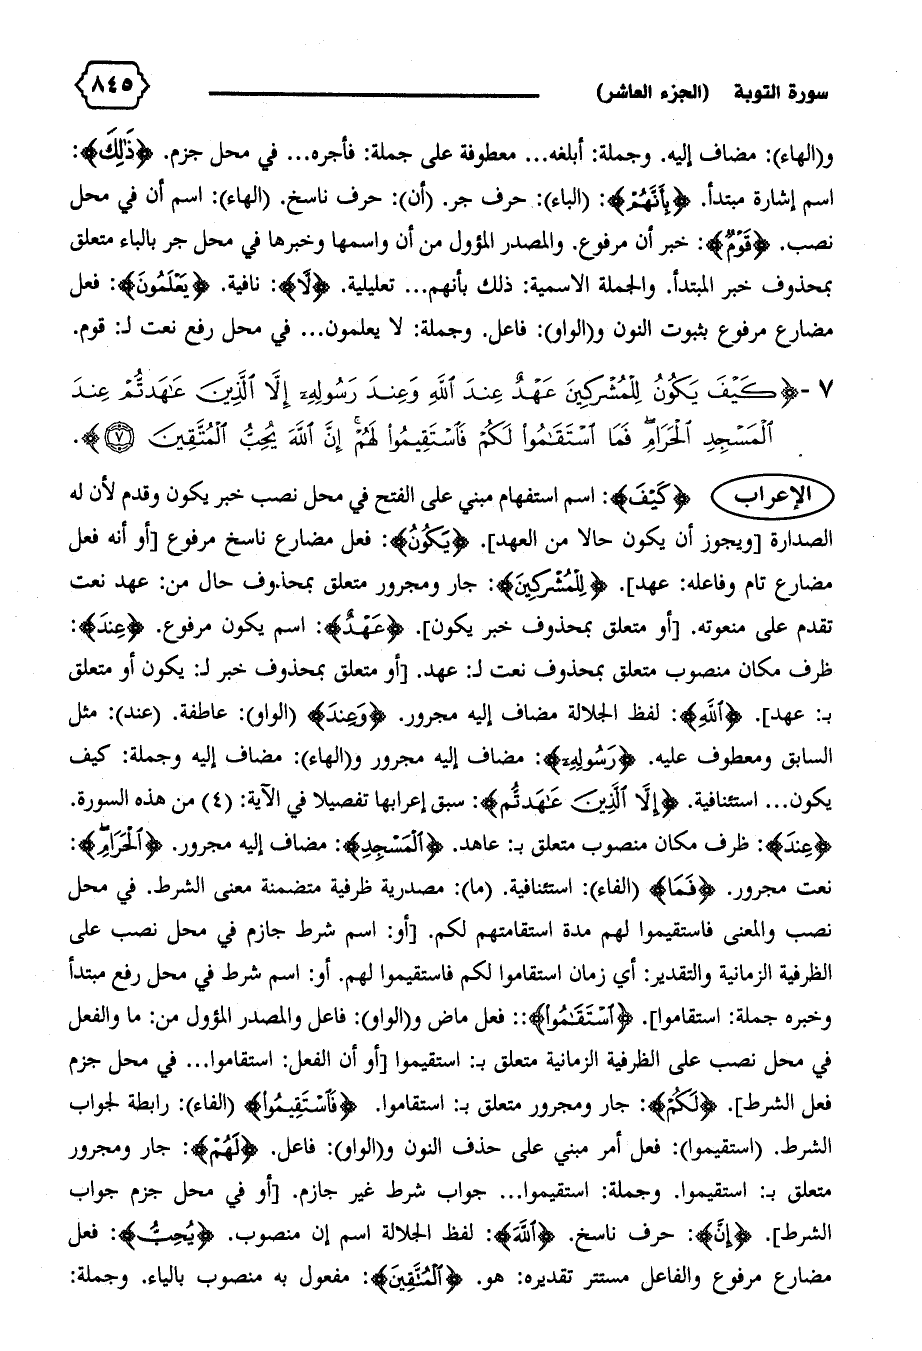 سورة التوبة (الجزء العاشر) ٨٤٥
و(الهاء): مضاف إليه. وجملة: أبلغه... معطوفة على جملة: فأجره... في محل جزم. ﴿ذَٰلِكَ﴾:
اسم إشارة مبتدأ. ﴿بِأَنَّهُمْ﴾: (الباء): حرف جر. (أن): حرف ناسخ. (الهاء): اسم أن في محل
نصب. ﴿قَوْمٌ﴾: خبر أن مرفوع. والمصدر المؤول من أن واسمها وخبرها في محل جر بالباء متعلق
بمحذوف خبر المبتدأ. والجملة الاسمية: ذلك بأنهم... تعليلية. ﴿لَّا﴾: نافية. ﴿يَعْلَمُونَ﴾: فعل
مضارع مرفوع بثبوت النون و(الواو): فاعل. وجملة: لا يعلمون... في محل رفع نعت لـ: قوم.
٧ - ﴿كَيْفَ يَكُونُ لِلْمُشْرِكِينَ عَهْدٌ عِندَ ٱللَّهِ وَعِندَ رَسُولِهِۦٓ إِلَّا ٱلَّذِينَ عَٰهَدتُّمْ عِندَ
ٱلْمَسْجِدِ ٱلْحَرَامِۖ فَمَا ٱسْتَقَٰمُواْ لَكُمْ فَٱسْتَقِيمُواْ لَهُمْۚ إِنَّ ٱللَّهَ يُحِبُّ ٱلْمُتَّقِينَ ٧﴾.
الإعراب ﴿كَيْفَ﴾: اسم استفهام مبني على الفتح في محل نصب خبر يكون وقدم لأن له
الصدارة [ويجوز أن يكون حالا من العهد]. ﴿يَكُونُ﴾: فعل مضارع ناسخ مرفوع [أو أنه فعل
مضارع تام وفاعله: عهد]. ﴿لِلْمُشْرِكِينَ﴾: جار ومجرور متعلق بمحذوف حال من: عهد نعت
تقدم على منعوته. [أو متعلق بمحذوف خبر يكون]. ﴿عَهْدٌ﴾: اسم يكون مرفوع. ﴿عِندَ﴾:
ظرف مكان منصوب متعلق بمحذوف نعت لـ: عهد. [أو متعلق بمحذوف خبر لـ: يكون أو متعلق
بـ: عهد]. ﴿ٱللَّهِ﴾: لفظ الجلالة مضاف إليه مجرور. ﴿وَعِندَ﴾ (الواو): عاطفة. (عند): مثل
السابق ومعطوف عليه. ﴿رَسُولِهِۦٓ﴾: مضاف إليه مجرور و(الهاء): مضاف إليه وجملة: كيف
يكون... استئنافية. ﴿إِلَّا ٱلَّذِينَ عَٰهَدتُّم﴾: سبق إعرابها تفصيلا في الآية: (٤) من هذه السورة.
﴿عِندَ﴾: ظرف مكان منصوب متعلق بـ: عاهد. ﴿ٱلْمَسْجِدِ﴾: مضاف إليه مجرور. ﴿ٱلْحَرَامِۖ﴾:
نعت مجرور. ﴿فَمَا﴾ (الفاء): استئنافية. (ما): مصدرية ظرفية متضمنة معنى الشرط. في محل
نصب والمعنى فاستقيموا لهم مدة استقامتهم لكم. [أو: اسم شرط جازم في محل نصب على
الظرفية الزمانية والتقدير: أي زمان استقاموا لكم فاستقيموا لهم. أو: اسم شرط في محل رفع مبتدأ
وخبره جملة: استقاموا]. ﴿ٱسْتَقَٰمُواْ﴾:: فعل ماض و(الواو): فاعل والمصدر المؤول من: ما والفعل
في محل نصب على الظرفية الزمانية متعلق بـ: استقيموا [أو أن الفعل: استقاموا... في محل جزم
فعل الشرط]. ﴿لَكُمْ﴾: جار ومجرور متعلق بـ: استقاموا. ﴿فَٱسْتَقِيمُواْ﴾ (الفاء): رابطة لجواب
الشرط. (استقيموا): فعل أمر مبني على حذف النون و(الواو): فاعل. ﴿لَهُمْ﴾: جار ومجرور
متعلق بـ: استقيموا. وجملة: استقيموا... جواب شرط غير جازم. [أو في محل جزم جواب
الشرط]. ﴿إِنَّ﴾: حرف ناسخ. ﴿ٱللَّهَ﴾: لفظ الجلالة اسم إن منصوب. ﴿يُحِبُّ﴾: فعل
مضارع مرفوع والفاعل مستتر تقديره: هو. ﴿ٱلْمُتَّقِينَ﴾: مفعول به منصوب بالياء. وجملة: